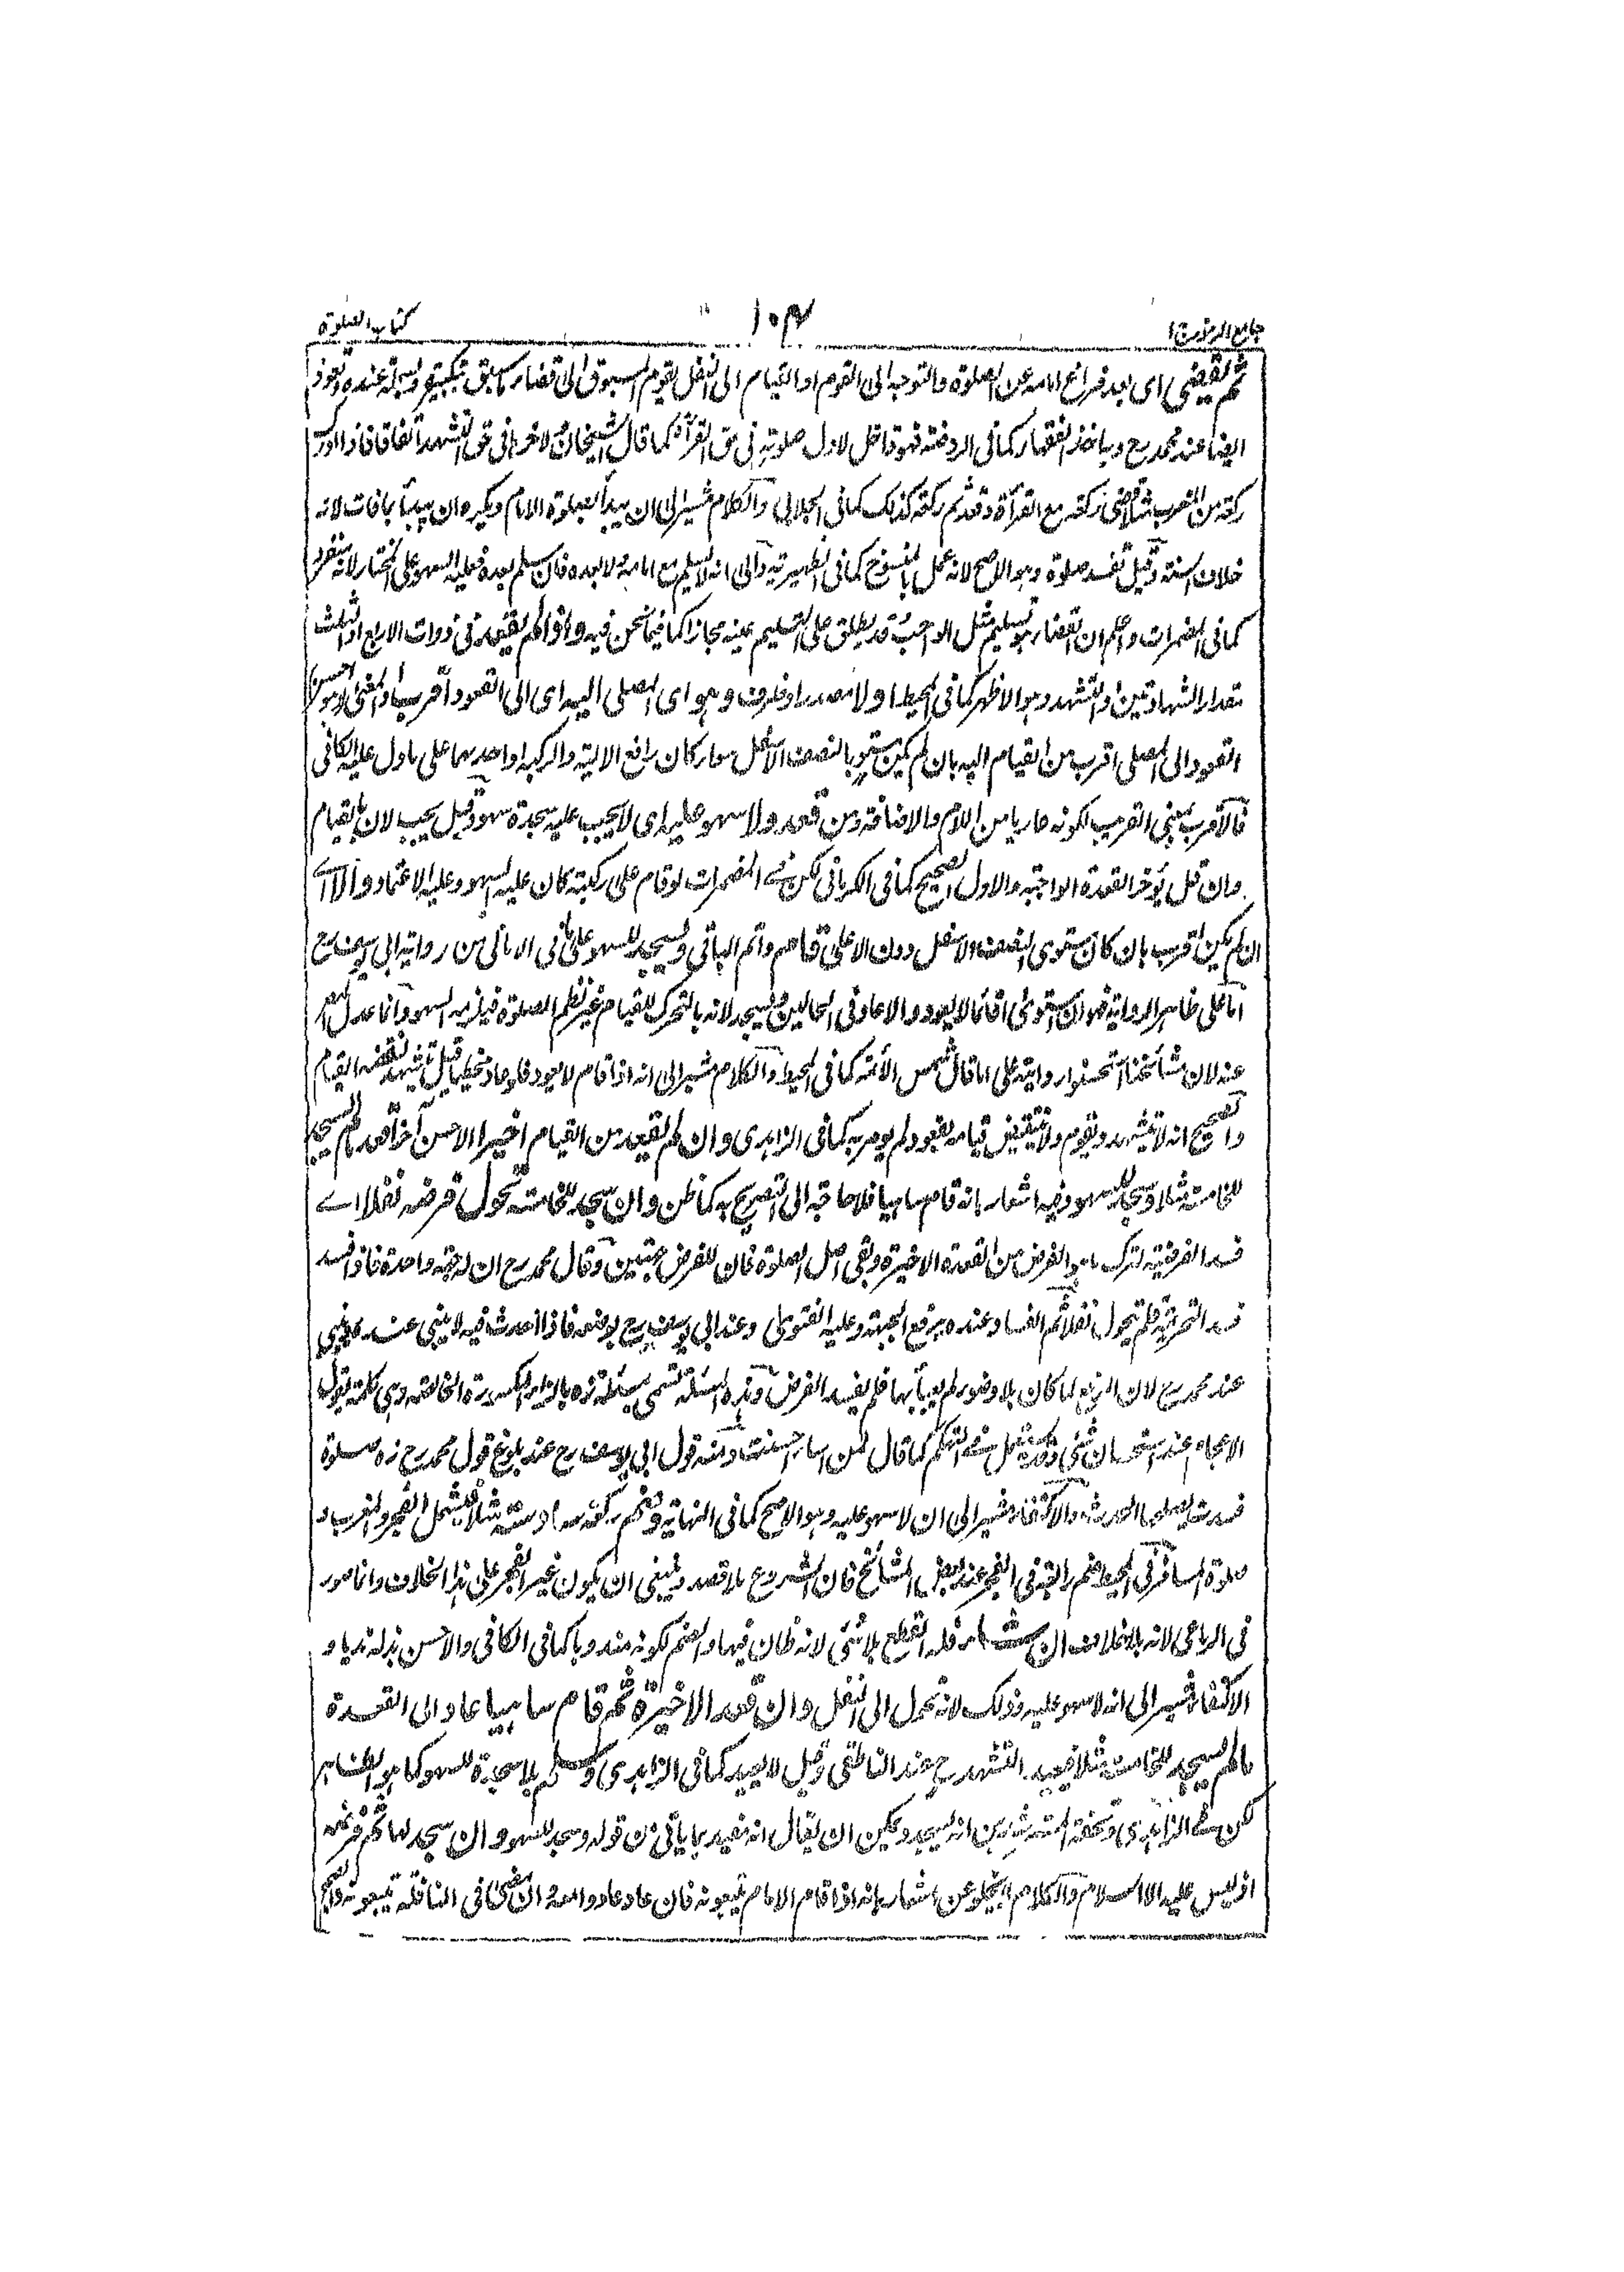 جامع الرموز ج ١
١٠٤
كتاب الصلوة
ثم يقضي اى بعد فراغ امامه عن الصلوة والتوجه الى القوم او القيام الى النفل يقوم المسبوق الى قضاء ما سبق بتكبيرة عنده ويتعوذ
ايضا عند محمد رح وبه اخذ الفقهاء كما فى الروضة فهو داخل لاول صلوته فى حق القرأة كما قال الشيخان ولاخرها فى حق التشهد اتفاقا فاذا ادرك
ركعة من المغرب مثلا قضى ركعة مع القرأة وقعد ثم ركعة كذلك كما فى الجلابى والكلام مشير الى ان يبدأ بصلوة الامام ويكره ان يبدأ بما فات لانه
خلاف السنة وقيل تفسد صلوة وهو الاصح لانه عمل بالمنسوخ كما فى الظهيرية والى انه لا يسلم مع امامه ولا بعده فان سلم بعده فعليه السهو على المختار لانه منفرد
كما فى المضمرات واعلم ان القضاء هو تسليم مثل الواجب وقد يطلق على التسليم عينه مجازا كما فيما نحن فيه واذا لم يقعد فى ذوات الاربع او الثلث
مقدار الشهادتين او التشهد وهو الاظهر كما فى المحيط اولا مصدر او ظرف وهو اى المصلى اليه اى الى القعود اقرب والمعنى
القعود الى المصلى اقرب من القيام اليه بان لم يكن يستوى بالنصف الاسفل سواء كان رافع الالية والركبة او احدهما على ما دل عليه الكافى
فالاقرب بمعنى القريب لكونه عاريا من اللام والاضافة ومن قعد ولا سهو عليه اى لا يجب عليه سجدة سهو وقيل يجب لان بالقيام
وان قل يؤخر القعدة الواجبة والاول الصحيح كما فى الكرمانى لكن فى المضمرات لو قام على ركبتيه كان عليه السهو وعليه الاعتماد والا اى
ان لم يكن اقرب بان كان يستوى النصف الاسفل دون الاعلى قام واتم الباقى ويسجد للسهو على ما فى الامالى من رواية ابى يوسف رح
اما على ظاهر الرواية فهو ان استوى قائما لا يعود والا عاد فى الحالين ويسجد لانه بالتحرك للقيام غير نظم الصلوة فيلزمه السهو وانما عدل المص
عنه لان مشائخنا استحسنوا روايته على ما قال شمس الائمة كما فى المحيط والكلام مشير الى انه اذا قام لا يعود فلو عاد مخطيا قيل يتشهد لنقضه القيام
والصحيح انه لا يتشهد ويقوم ولا ينتقض قيامه بقعود لم يومر به كما فى الزاهدى وان لم يقعد من القيام اخيرا الاحسن آخرا قعد ما لم يسجد
للخامسة مثلا وسجد للسهو وفيه اشعار بانه قام ساهيا فلا حاجة الى التصريح به كما ظن وان سجد للخامسة تحول فرضه نفلا اى
فسد الفرضية لترك ما هو الفرض من القعدة الاخيرة وبقى اصل الصلوة فان للفرض جهتين وقال محمد رح ان له جهة واحدة فاذا فسد
فسد التحريمة فلم يتحول نفلا ثم الفساد عنده برفع الجبهة وعليه الفتوى وعند ابى يوسف رح بوضعه فاذا احدث فيه لا يبنى عنده ويبنى
عند محمد رح لان الرفع لما كان بلا وضوء لم يعبأ بها فلم يفسد الفرض وهذه المسئلة تسمى بمسئلة زه بالزاء المكسورة الخالصة وهى كلمة يقول
الاعجام عند استحسان شئى وقد يستعمل فى التهكم كما قال لمن اساء احسنت ومنه قول ابى يوسف رح عند بلوغ قول محمد رح زه صلوة
فسدت يصلحها الحدث والاكتفاء مشير الى ان لا سهو عليه وهو الاصح كما فى النهاية وضم ركعة سادسة مثلا فيشمل الفجر والمغرب و
صلوة المسافر وفى المحيط ضم رابعة فى الفجر عند بعض المشائخ فان الشروع بلا قصد وينبغى ان يكون غير الفجر على هذا الخلاف وانما صور
فى الرباعى لانه بلا خلاف ان شاء فله القطع بلا شئى لانه ظان فيها والضم لكونه مندوبا كما فى الكافى والاحسن بدله ندبا و
الاكتفاء مشير الى انه لا سهو عليه وذلك لانه تحول الى النفل وان قعد الاخيرة ثم قام ساهيا عاد الى القعدة
ما لم يسجد للخامسة مثلا فيعيد التشهد ح عند الناطفى وقيل لا يعيد كما فى الزاهدى وسلم بلا سجدة للسهو كما هو الظاهر
لكن فى الزاهدى وتحفة المسترشدين انه يسجد ويمكن ان يقال انه مقيد بما ياتى من قوله وسجد للسهو وان سجد لها تم فرضه
اذ ليس عليه الا السلام والكلام لا يخلو عن اشعار بانه اذا قام الامام يتبعونه فان عاد عادوا معه وان مضى فى النافلة يتبعونه والصحيح